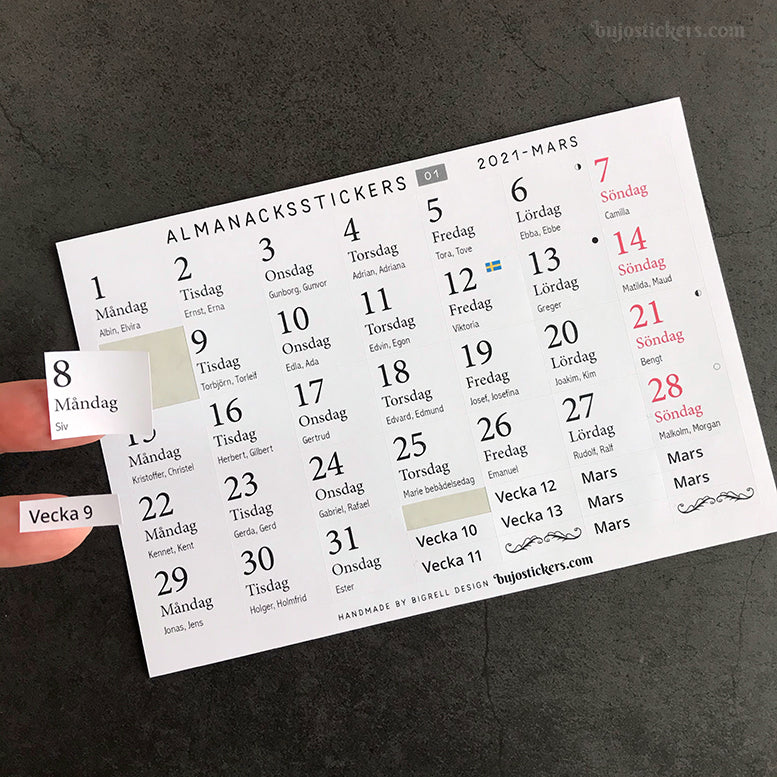 bujostickers.com
ALMANACKSSTICKERS 01 2021-MARS
1
Måndag
Albin, Elvira
2
Tisdag
Ernst, Erna
3
Onsdag
Gunborg, Gunvor
4
Torsdag
Adrian, Adriana
5
Fredag
Tora, Tove
6
Lördag
Ebba, Ebbe
7
Söndag
Camilla
8
Måndag
Siv
9
Tisdag
Torbjörn, Torleif
10
Onsdag
Edla, Ada
11
Torsdag
Edvin, Egon
12
Fredag
Viktoria
13
Lördag
Greger
14
Söndag
Matilda, Maud
15
Måndag
Kristoffer, Christel
16
Tisdag
Herbert, Gilbert
17
Onsdag
Gertrud
18
Torsdag
Edvard, Edmund
19
Fredag
Josef, Josefina
20
Lördag
Joakim, Kim
21
Söndag
Bengt
22
Måndag
Kennet, Kent
23
Tisdag
Gerda, Gerd
24
Onsdag
Gabriel, Rafael
25
Torsdag
Marie bebådelsedag
26
Fredag
Emanuel
27
Lördag
Rudolf, Ralf
28
Söndag
Malkolm, Morgan
29
Måndag
Jonas, Jens
30
Tisdag
Holger, Holmfrid
31
Onsdag
Ester
Vecka 9
Vecka 10
Vecka 11
Vecka 12
Vecka 13
Mars
Mars
Mars
Mars
Mars
HANDMADE BY BIGRELL DESIGN bujostickers.com